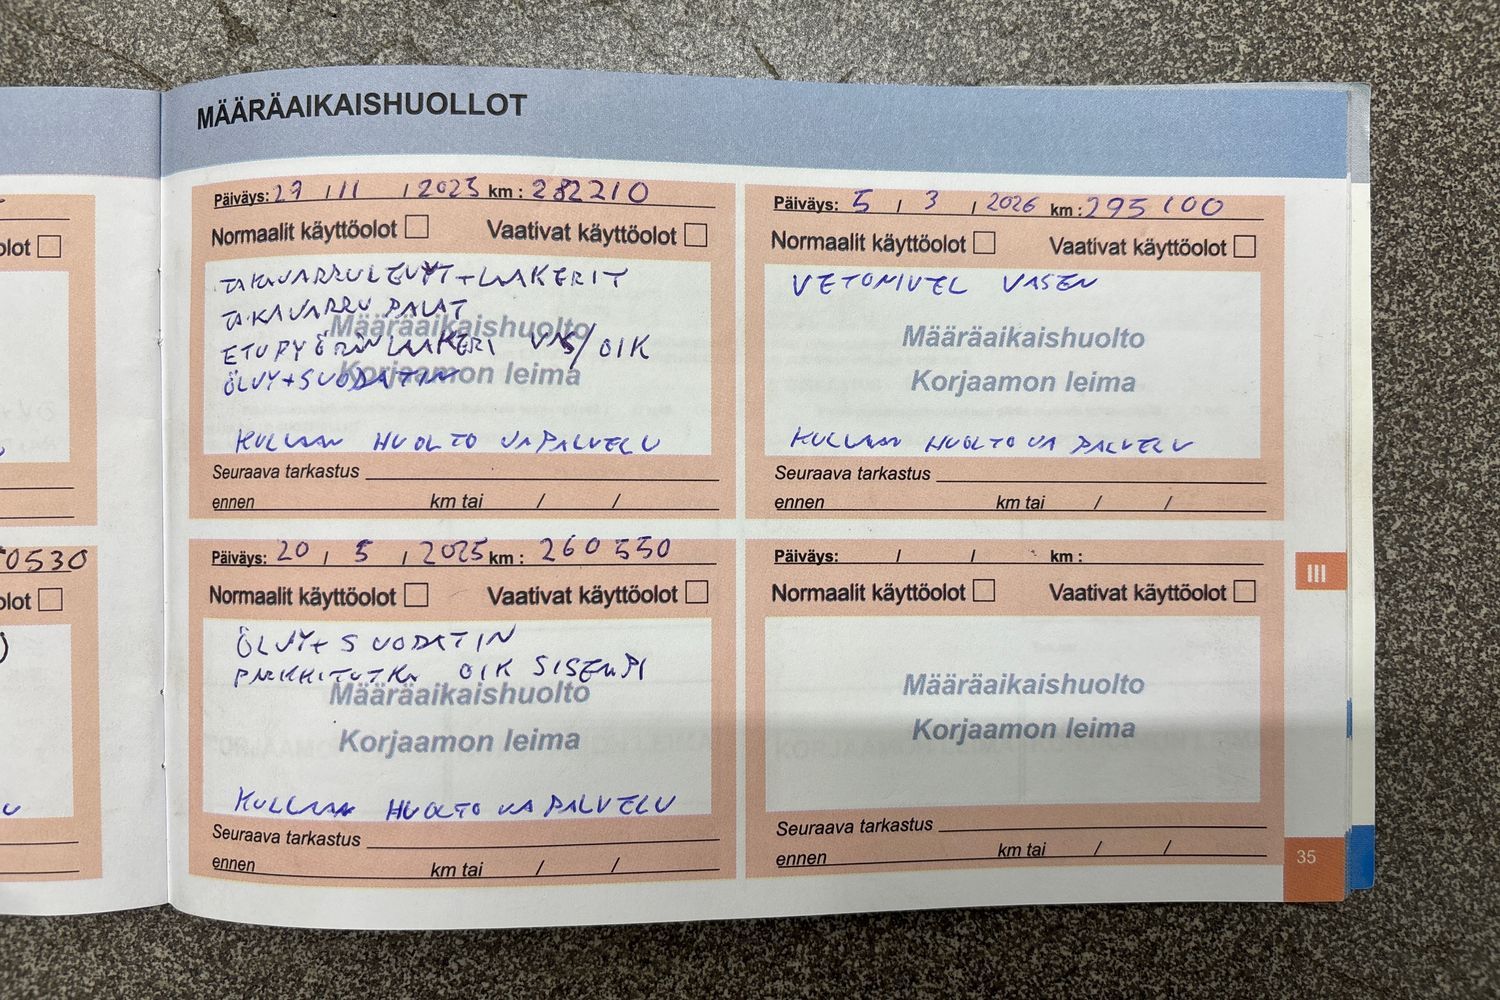 MÄÄRÄAIKAISHUOLLOT
Päiväys: 27 / 11 / 2025 km : 282210
Normaalit käyttöolot Vaativat käyttöolot
TAKAVARRULEVYT+LAAKERIT
TAKAVARRU PALAT
ETUPYÖRÄNLAAKERI VAS/OIK
ÖLJY+SUODATIN
Määräaikaishuolto
Korjaamon leima
KULLAAN HUOLTO JA PALVELU
Seuraava tarkastus
ennen km tai / /
Päiväys: 5 / 3 / 2026 km : 295100
Normaalit käyttöolot Vaativat käyttöolot
VETONIVEL VASEN
Määräaikaishuolto
Korjaamon leima
KULLAAN HUOLTO JA PALVELU
Seuraava tarkastus
ennen km tai / /
0530
olot
olot
Päiväys: 20 / 5 / 2025 km : 260550
Normaalit käyttöolot Vaativat käyttöolot
ÖLJY+SUODATIN
PARKKITUTKA OIK SISEMPI
Määräaikaishuolto
Korjaamon leima
KULLAAN HUOLTO JA PALVELU
Seuraava tarkastus
ennen km tai / /
Päiväys: / / km :
Normaalit käyttöolot Vaativat käyttöolot
Määräaikaishuolto
Korjaamon leima
Seuraava tarkastus
ennen km tai / /
III
35